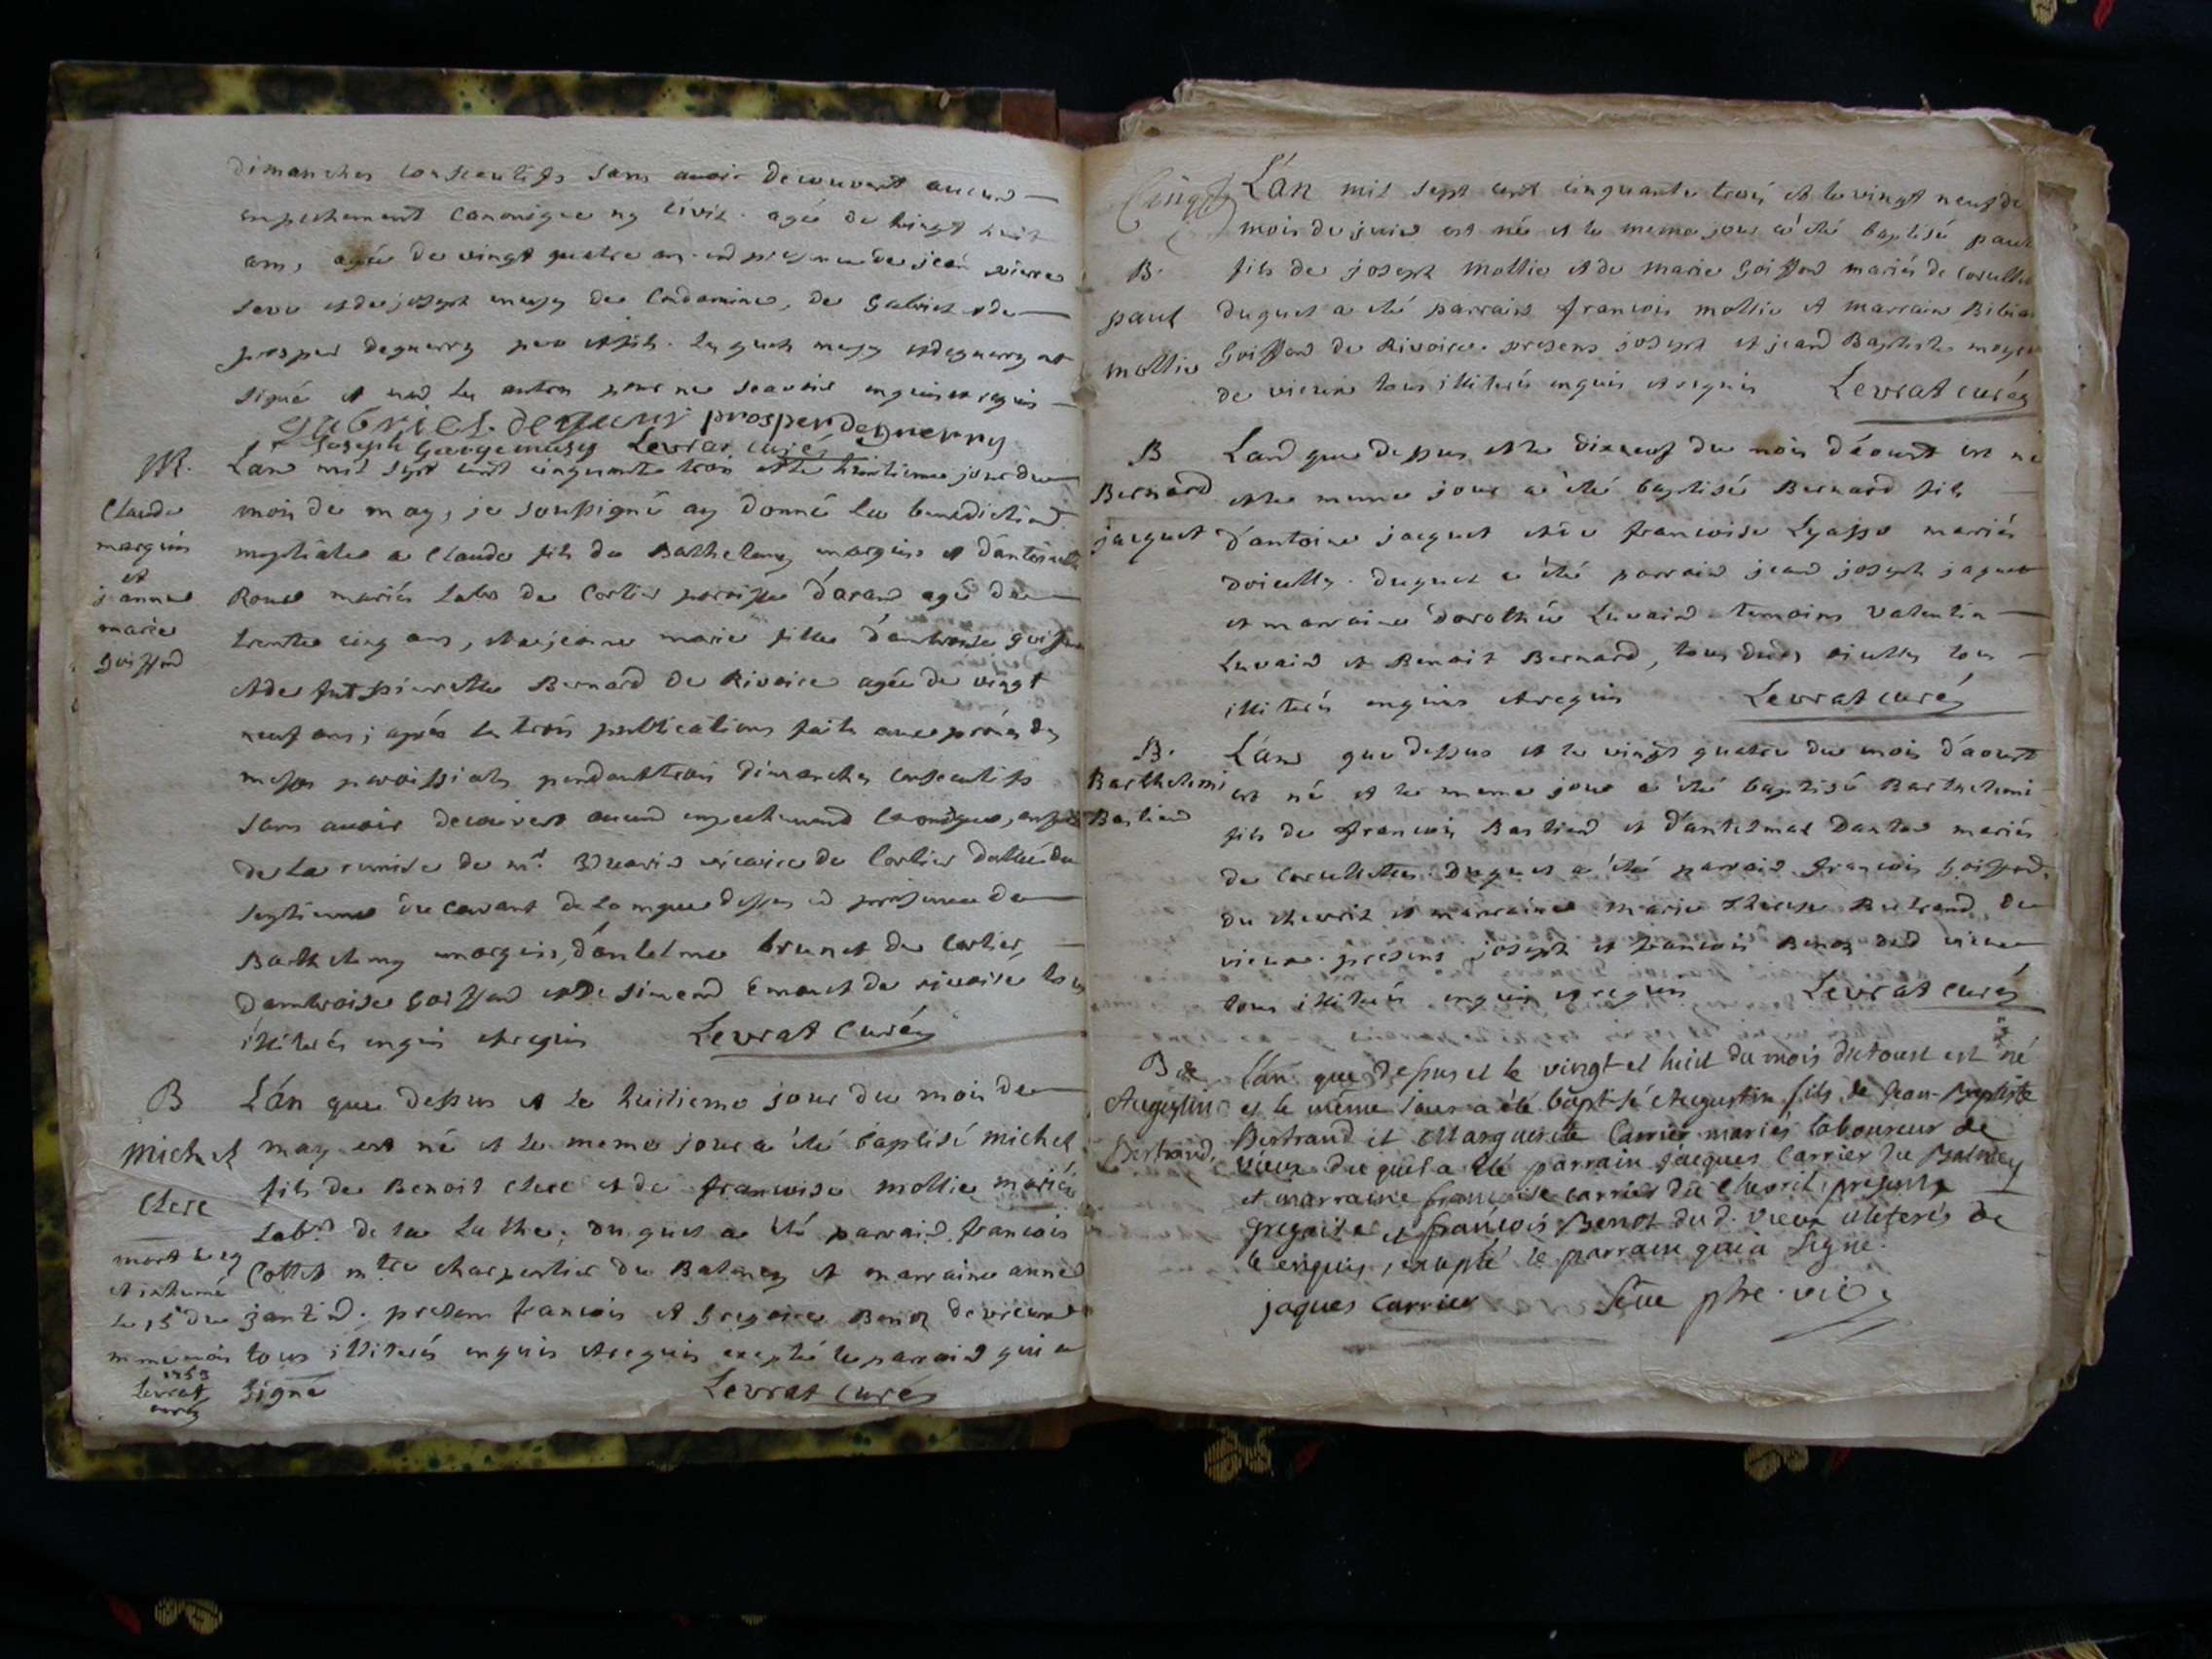 dimanches consecutifs sans avoir decouvert aucun
empechement canonique ny civil. agé de vingt huit
ans, agée de vingt quatre ans. en presence de jean pierre
seve et de joseph de Condamine, de Gabriel et de
prosper deguerry pere et fils. lesquels et deguerry ont
signé et non les autres pour ne scavoir enquis et requis
gabriel deguerry prosper deguerry
Joseph George Levrat curé
M. L'an mil sept cent cinquante trois et le huitieme jour du
Claude mois de may, je soussigné ay donné la benediction
marguin nuptiale a Claude fils de Barthelemy marguin et d'antoinette
et Roux mariés Labrs de Corlier parroisse d'aran agé de
jeanne trente cinq ans, et a jeanne marie fille d'ambroise goiffon
marie et de fut pierrette Bernard de Rivoire agée de vingt
goiffond neuf ans; aprés les trois publications faites aux prônes des
messes paroissiales pendant trois dimanches consecutifs
sans avoir decouvert aucun empechement canonique, ensuite
de la remise de mr. vicaire de Corlier dattée du
septieme du courant de la que dessus en presence de
Barthelemy marguin, d'antelme brunet de Corlier,
d'ambroise Goiffond et de simond Emonet de rivoire tous
illiterés enquis et requis Levrat Curé
B L'án que dessus et le huitieme jour du mois de
michel may est né et le meme jour a été baptisé michel
Clerc fils de Benoit Clerc et de francoise mollie mariés
Labrs de la duquel a été parrain francois
mort le 14 Cottet mtre charpentier du Balmey et marraine anne
et inhumé
le 15 du jantin. presens francois et Gregoire Benoz de vieux
meme mois tous illiterés enquis et requis excepté le parrain qui a
1753
Levrat signé Levrat Curé
curé
L'án mil sept cent cinquante trois et le vingt neuf du
mois de juin est né et le meme jour a été baptisé paul
B. fils de joseph Mollie et de marie Goiffon mariés de Corcellette
paul duquel a été parrain francois mollie et marraine Bibiane
mollie Goiffond de Rivoire. presens joseph et jean Baptiste
de vieux tous illiterés enquis et requis Levrat curé
B L'an que dessus et le dixneuf du mois d'áoust est né
Bernard et le meme jour a été baptisé Bernard fils
jacquet d'antoine jacquet et de francoise mariés
d'oisselle. duquel a été parrain jean joseph jaquet
et marraine dorothée Luvain temoins Valentin
Luvain et Benoit Bernard, tous dudt tous
illiterés enquis et requis Levrat curé
B. L'an que dessus et le vingt quatre du mois d'aoust
Barthelemi est né et le meme jour a été baptisé Barthelemi
Bastiand fils de francois Bastiand et d'anthelmaz Danton mariés
de Corcellette. duquel a été parrain francois Goiffond
du chevril et marraine marie therese Bertrand de
vieux. presens joseph et francois Benoz dud vieux
tous illiterés enquis et requis Levrat curé
B de L'an que dessus et le vingt et huit du mois d'aoust est né
Augustin et le même jour a été baptisé Augustin fils de Jean-Baptiste
Bertrand. Bertrand et Marguerite Carrier mariés laboureur de
vieux duquel a été parrain jacques Carrier du Balmey
et marraine francoise carrier du chevril; presents
gregoire et françois Benoz du d. vieux illeterés de
ce enquis, excepté le parrain qui a signé.
jaques Carrier Séve ptre. vic.